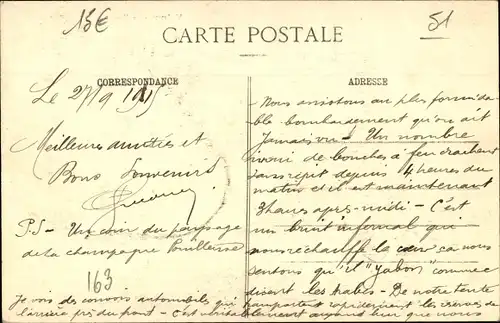 15€
51
CARTE POSTALE
CORRESPONDANCE
ADRESSE
Le 27/9 1915
Meilleures amitiés et
Bons Souvenirs
P.S - Un coin du paysage
de la champagne Pouilleuse
163
Je vois des convois automobiles qui
l'arrière près du front - C'est
Nous assistons au plus formida-
ble bombardement qu'on ait
Jamais vu - Un nombre
inouï de bouches à feu crachent
sans répit depuis 4 heures du
matin et il est maintenant
3 heures après-midi - C'est
un bruit infernal qui
nous réchauffe le cœur ça nous
sentons qu'il "Yabon" comme
disent les Kabés - De notre tente
transportent rapidement les réserves de
aujourd'hui que nous